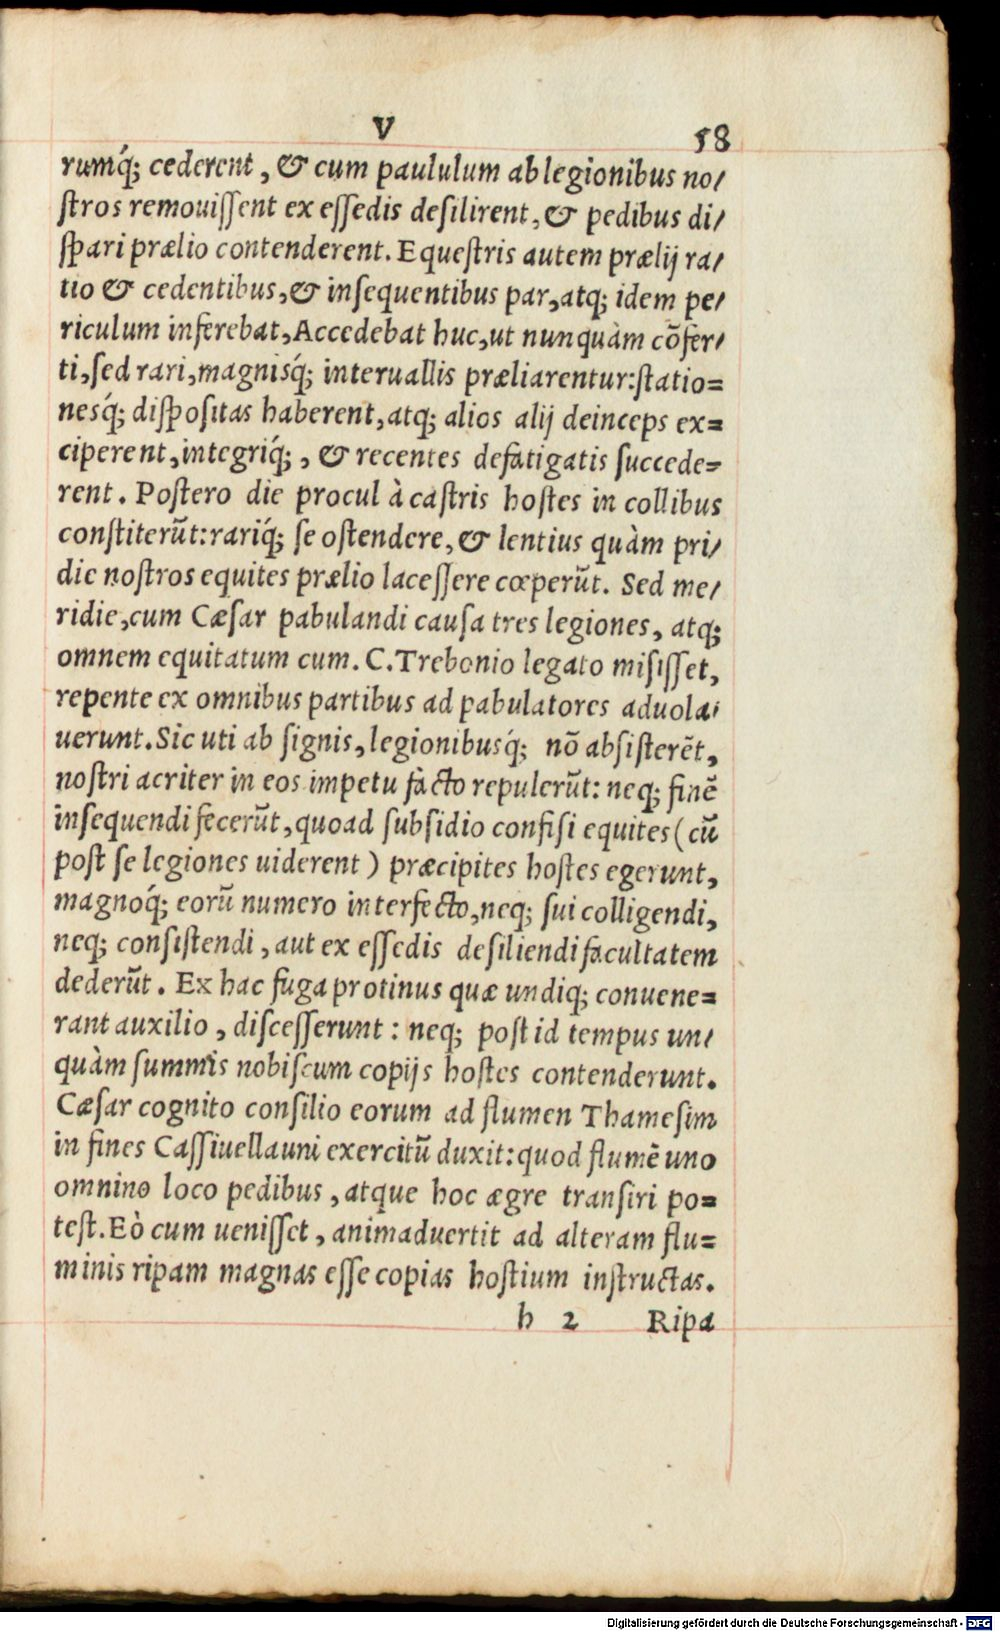 V 58
rumq́; cederent, & cum paululum ab legionibus no/
ſtros remouiſſent ex eſſedis deſilirent, & pedibus di/
ſpari prælio contenderent. Equeſtris autem prælij ra/
tio & cedentibus, & inſequentibus par, atq; idem pe/
riculum inferebat, Accedebat huc, ut nunquàm cõfer/
ti, ſed rari, magnisq́; interuallis præliarentur: ſtatio=
nesq́; diſpoſitas haberent, atq; alios alij deinceps ex=
ciperent, integriq́;, & recentes defatigatis ſuccede=
rent. Poſtero die procul à caſtris hoſtes in collibus
conſtiterũt: rariq́; ſe oſtendere, & lentius quàm pri/
die noſtros equites prælio laceſſere cœperũt. Sed me/
ridie, cum Cæſar pabulandi cauſa tres legiones, atq;
omnem equitatum cum. C. Trebonio legato miſiſſet,
repente ex omnibus partibus ad pabulatores aduola/
uerunt. Sic uti ab ſignis, legionibusq́; nõ abſiſterẽt,
noſtri acriter in eos impetu facto repulerũt: neq; finẽ
inſequendi fecerũt, quoad ſubſidio confiſi equites (cũ
poſt ſe legiones uiderent) præcipites hoſtes egerunt,
magnoq́; eorũ numero interfecto, neq; ſui colligendi,
neq; conſiſtendi, aut ex eſſedis deſiliendi facultatem
dederũt. Ex hac fuga protinus quæ undiq; conuene=
rant auxilio, diſceſſerunt: neq; poſt id tempus un/
quàm ſummis nobiſcum copijs hoſtes contenderunt.
Cæſar cognito conſilio eorum ad flumen Thameſim
in fines Caſſiuellauni exercitũ duxit: quod flumẽ uno
omnino loco pedibus, atque hoc ægre tranſiri po=
teſt. Eò cum ueniſſet, animaduertit ad alteram flu=
minis ripam magnas eſſe copias hoſtium inſtructas.
h 2 Ripa
Digitalisierung gefördert durch die Deutsche Forschungsgemeinschaft - DFG